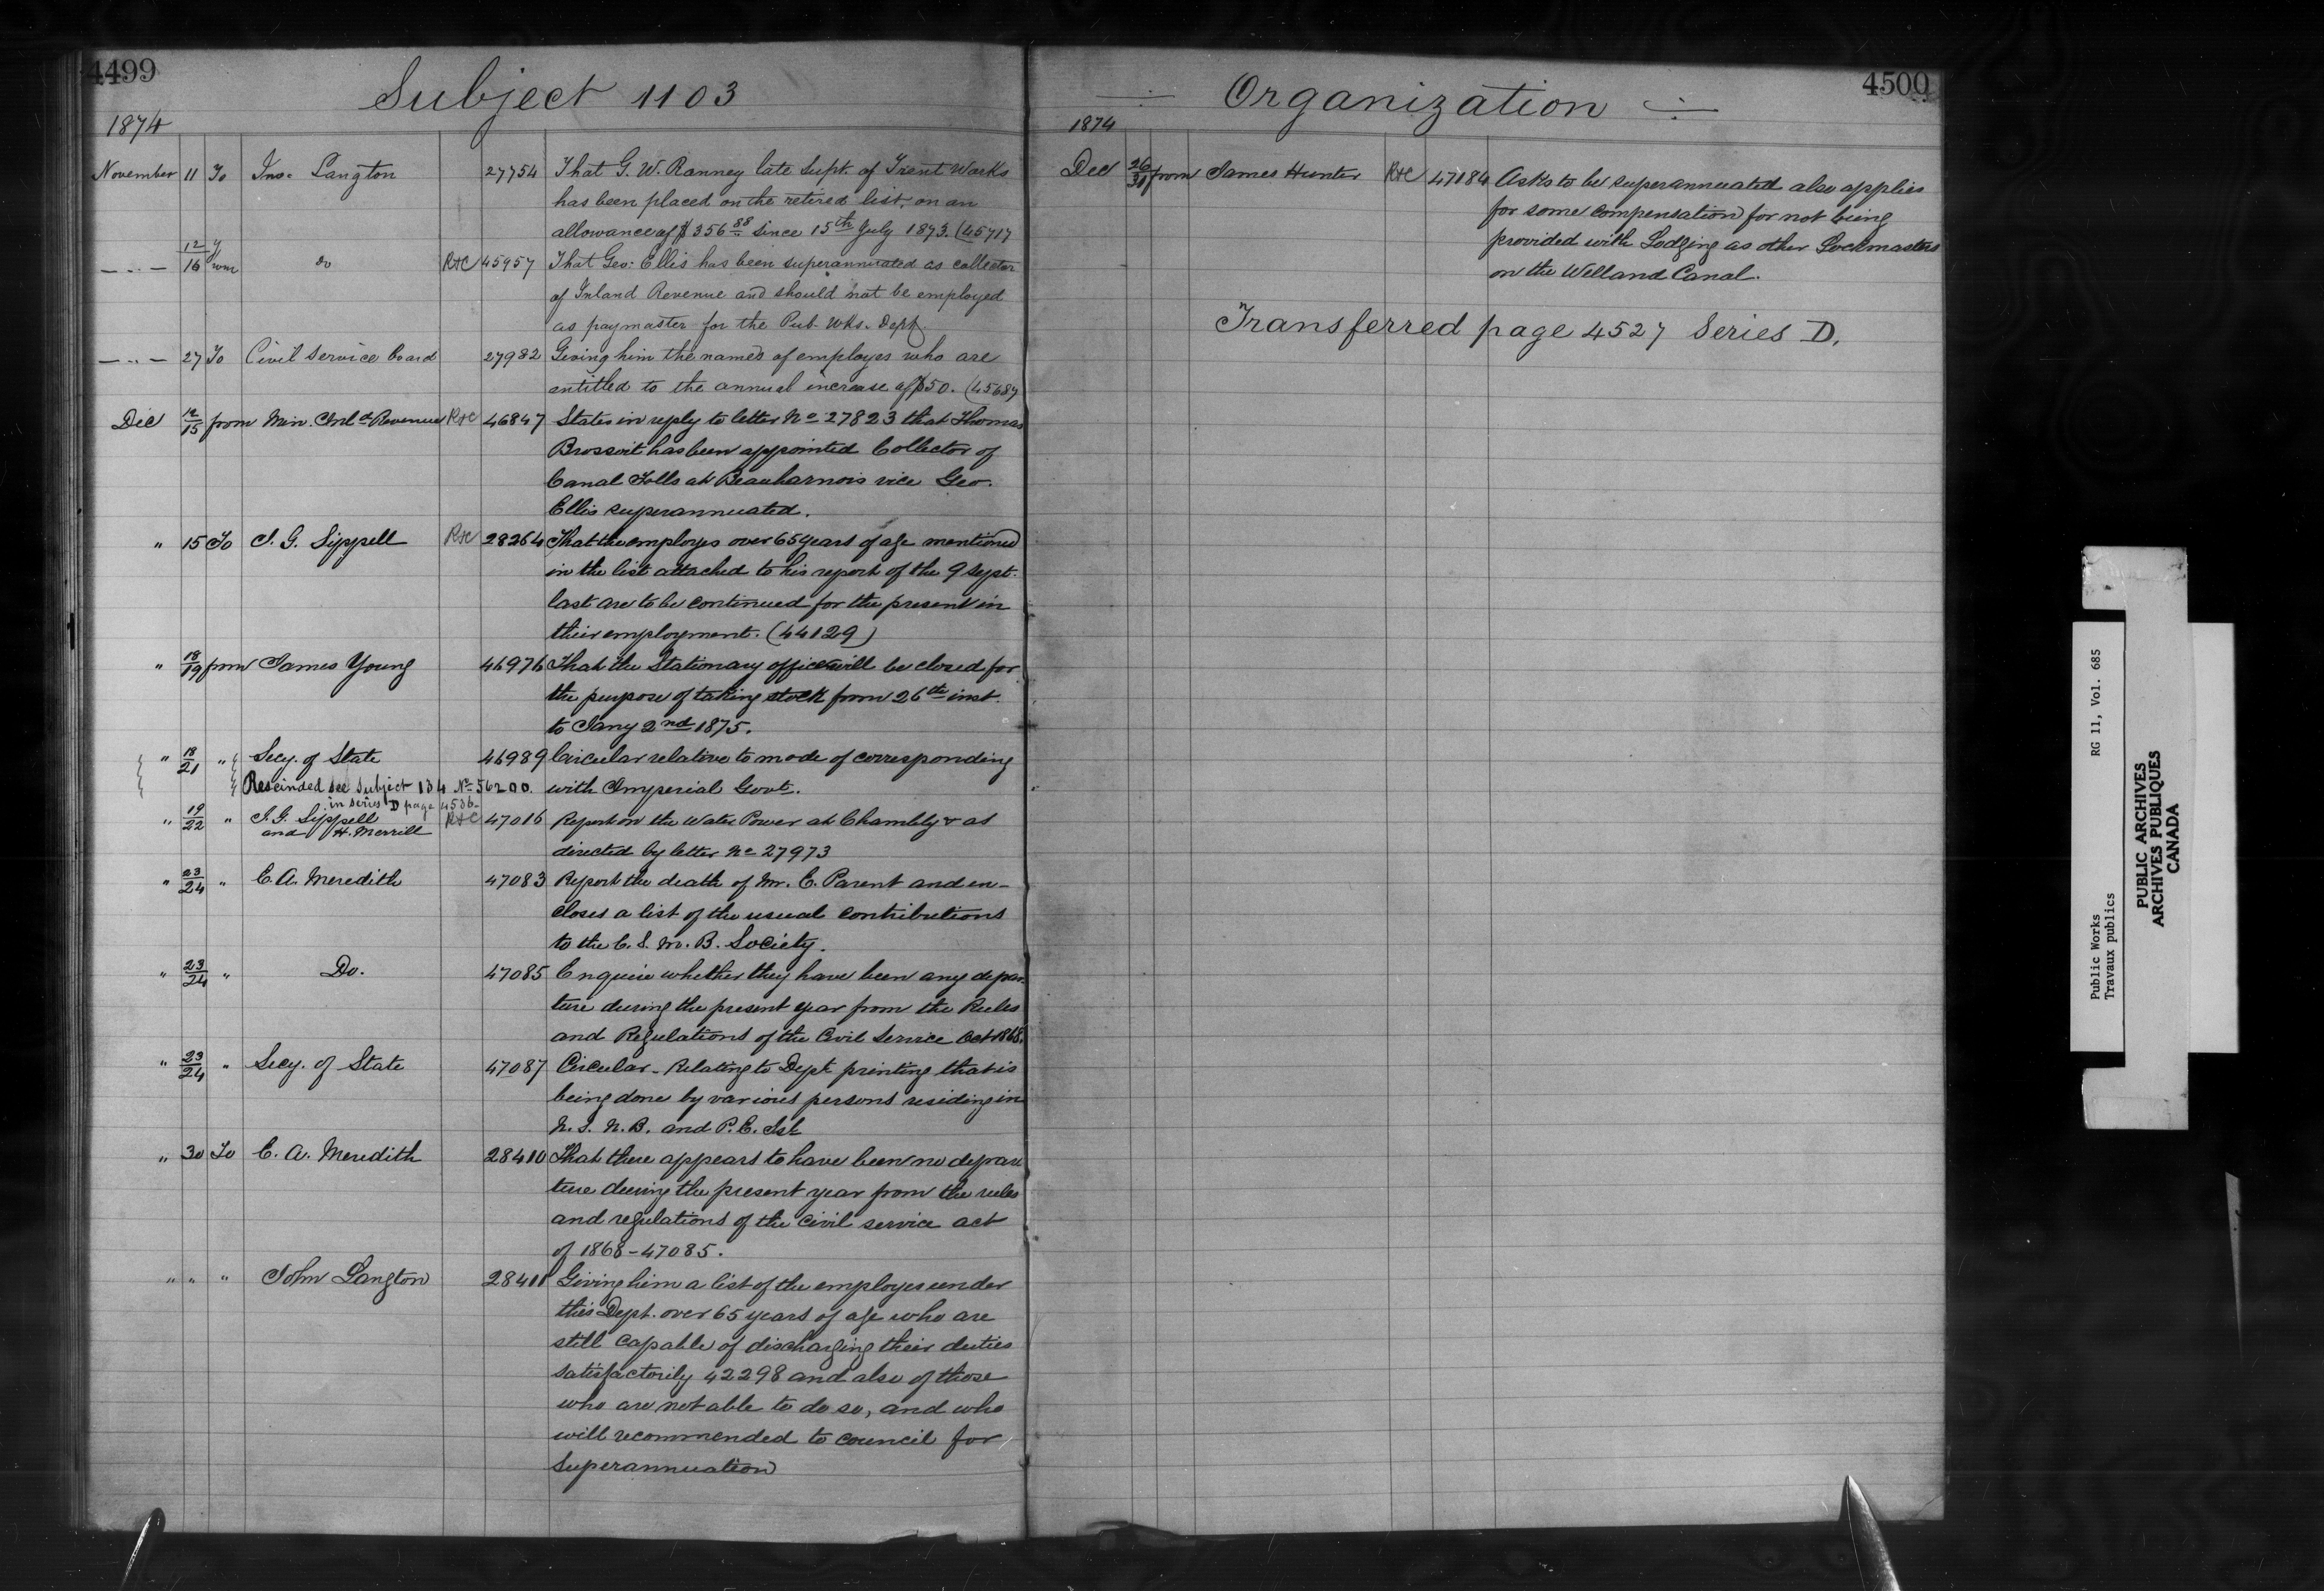 4499
Subject 1103
1874
November 11 To Jno. Langton 27754 That G. W. Ranney late Supt. of Trent Works
has been placed on the retired list, on an
allowance of $356 88 since 15th July 1873. (45717
— " — 12/16 from do R+C 45957 That Geo. Ellis has been superannuated as collector
of Inland Revenue and should not be employed
as paymaster for the Pub. Wks. Dept.
— " — 27 To Civil Service Board 27982 Giving him the names of employes who are
entitled to the annual increase of $50. (45687
Dec 12/15 from Min. Inld Revenue R+C 46847 States in reply to letter No 27823 that Thomas
Brossoit has been appointed Collector of
Canal Tolls at Beauharnois vice Geo.
Ellis superannuated.
" 15 To J. G. Sippell R+C 28264 That the employes over 65 years of age mentioned
in the list attached to his report of the 9 Sept.
last are to be continued for the present in
their employment. (44129)
" 18/19 from James Young 46976 That the Stationary office will be closed for
the purpose of taking stock from 26th inst.
to Jany 2nd 1875.
" 18/21 " Secy. of State 46989 Circular relative to mode of corresponding
Rescinded see Subject 134 No 56200 with Imperial Govt.
in series D page 4536
" 19/22 " J. G. Sippell R+C 47016 Report on the Water Power at Chambly & as
and H. Merrill
directed by letter No 27973
" 23/24 " E. A. Meredith 47083 Report the death of Mr. E. Parent and en-
closes a list of the usual contributions
to the C. S. M. B. Society.
" 23/24 " Do. 47085 Enquire whether they have been any depar-
ture during the present year from the Rules
and Regulations of the Civil Service Act 1868.
" 23/24 " Secy. of State 47087 Circular - Relating to Dept printing that is
being done by various persons residing in
N. S. N. B. and P. E. Isl
" 30 To E. A. Meredith 28410 That there appears to have been no depar
ture during the present year from the rules
and regulations of the civil service act
of 1868 - 47085.
" " " John Langton 28411 Giving him a list of the employes under
this Dept. over 65 years of age who are
still capable of discharging their duties
satisfactorily 42298 and also of those
who are not able to do so, and who
will recommended to council for
superannuation
4500
Organization
1874
Dec 26/31 from James Hunter R+C 47184 Asks to be superannuated also applies
for some compensation for not being
provided with Lodging as other Lockmasters
on the Welland Canal.
Transferred page 4527 Series D.
Public Works RG 11, Vol. 685
Travaux publics
PUBLIC ARCHIVES
ARCHIVES PUBLIQUES
CANADA